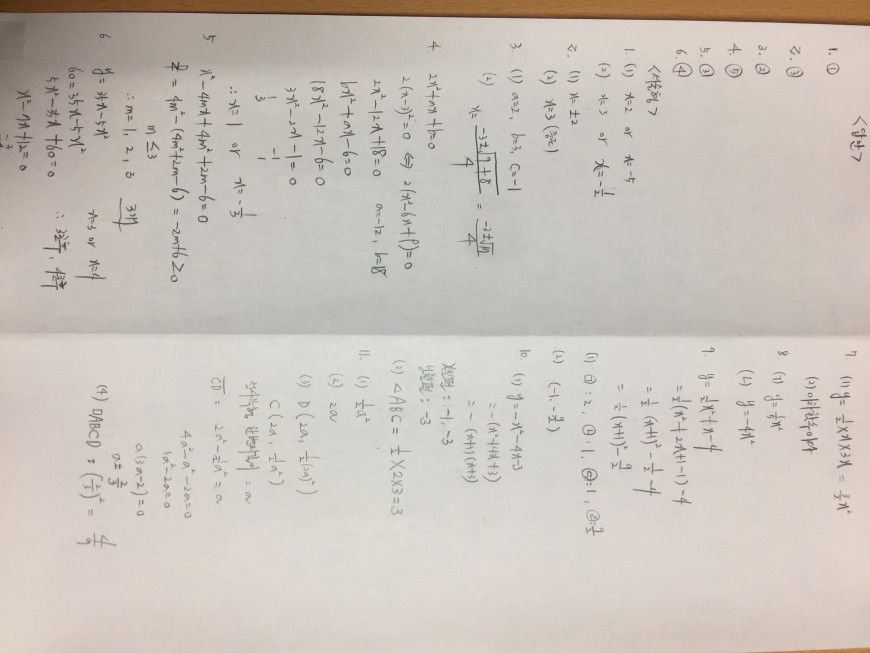 <답안>
1. ①
2. ③
3. ②
4. ⑤
5. ③
6. ④
<서술형>
1. (1) x=2 or x=-5
(2) x=3 or x=-1/2
2. (1) x=±2
(2) x=3 (중근)
3. (1) a=2, b=3, c=-1
(2) x= (-3±√(9+8))/4 = (-3±√17)/4
4. 2x²+ax+b=0
2(x-3)²=0 ⇔ 2(x²-6x+9)=0
2x²-12x+18=0 a=-12, b=18
bx²+ax-6=0
18x²-12x-6=0
3x²-2x-1=0
3 1
1 -1
∴ x=1 or x=-1/3
5. x²-4mx+4m²+2m-6=0
D/4 = 4m²-(4m²+2m-6) = -2m+6≥0
m≤3
∴ m=1, 2, 3 3개
6. y=35x-5x²
60=35x-5x² x=3 or x=4
5x²-35x+60=0 ∴ 3초후, 4초후
x²-7x+12=0
-3
-4
7. (1) y=1/2×x×3x = 3/2x²
(2) 이차함수이다
8. (ㄱ) y=1/5x²
(ㄴ) y=-4x²
9. y=1/2x²+x-4
=1/2(x²+2x+1-1)-4
=1/2(x+1)²-1/2-4
=1/2(x+1)²-9/2
(1) ㉠:2, ㉡:1, ㉢:1, ㉣:9/2
(2) (-1, -9/2)
10. (1) y=-x²-4x-3
=-(x²+4x+3)
=-(x+1)(x+3)
x절편: -1, -3
y절편: -3
(2) △ABC = 1/2×2×3=3
11. (1) 1/2a²
(2) 2a
(3) D(2a, 1/2(2a)²)
C(2a, 1/2a²)
정사각형 한변의길이 = a
CD = 2a²-1/2a² = a
4a²-a²-2a=0
3a²-2a=0
a(3a-2)=0
a=2/3
(4) □ABCD : (2/3)² = 4/9